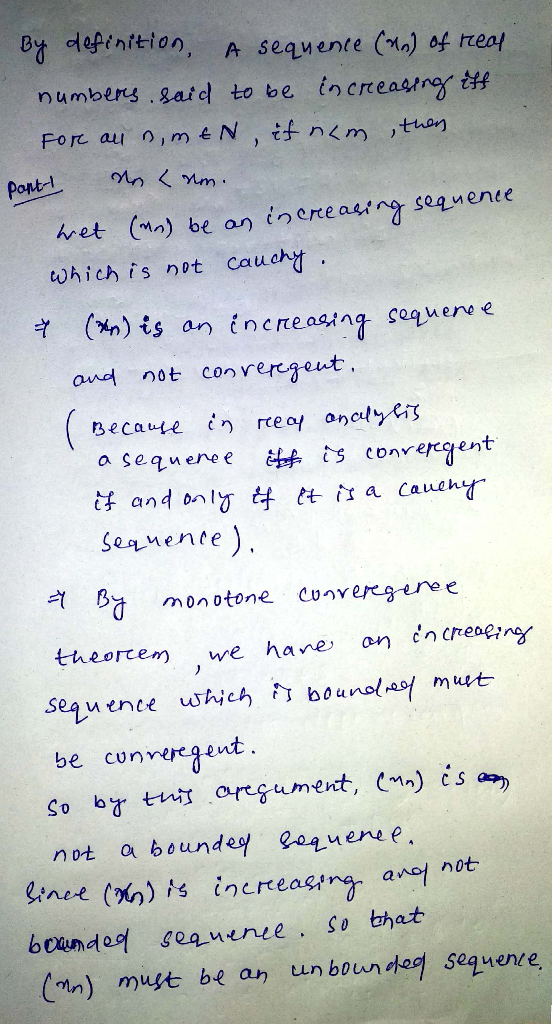 By definition, A sequence (xn) of real
numbers. said to be increasing iff
For all n, m ∈ N, if n<m, then
Part-1 xn < xm.
Let (xn) be an increasing sequence
which is not cauchy.
⇒ (xn) is an increasing sequence
and not convergent.
(Because in real analysis
a sequence iff is convergent
if and only if it is a cauchy
sequence).
⇒ By monotone convergence
theorem, we have an increasing
sequence which is bounded must
be convergent.
So by this argument, (xn) is
not a bounded sequence.
Since (xn) is increasing and not
bounded sequence. So that
(xn) must be an unbounded sequence.